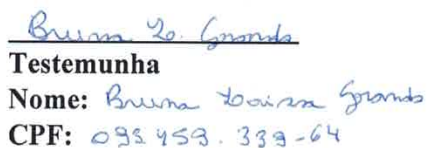 Bruna L. Grando
Testemunha
Nome: Bruna Loissa Grando
CPF: 093 459. 339-64